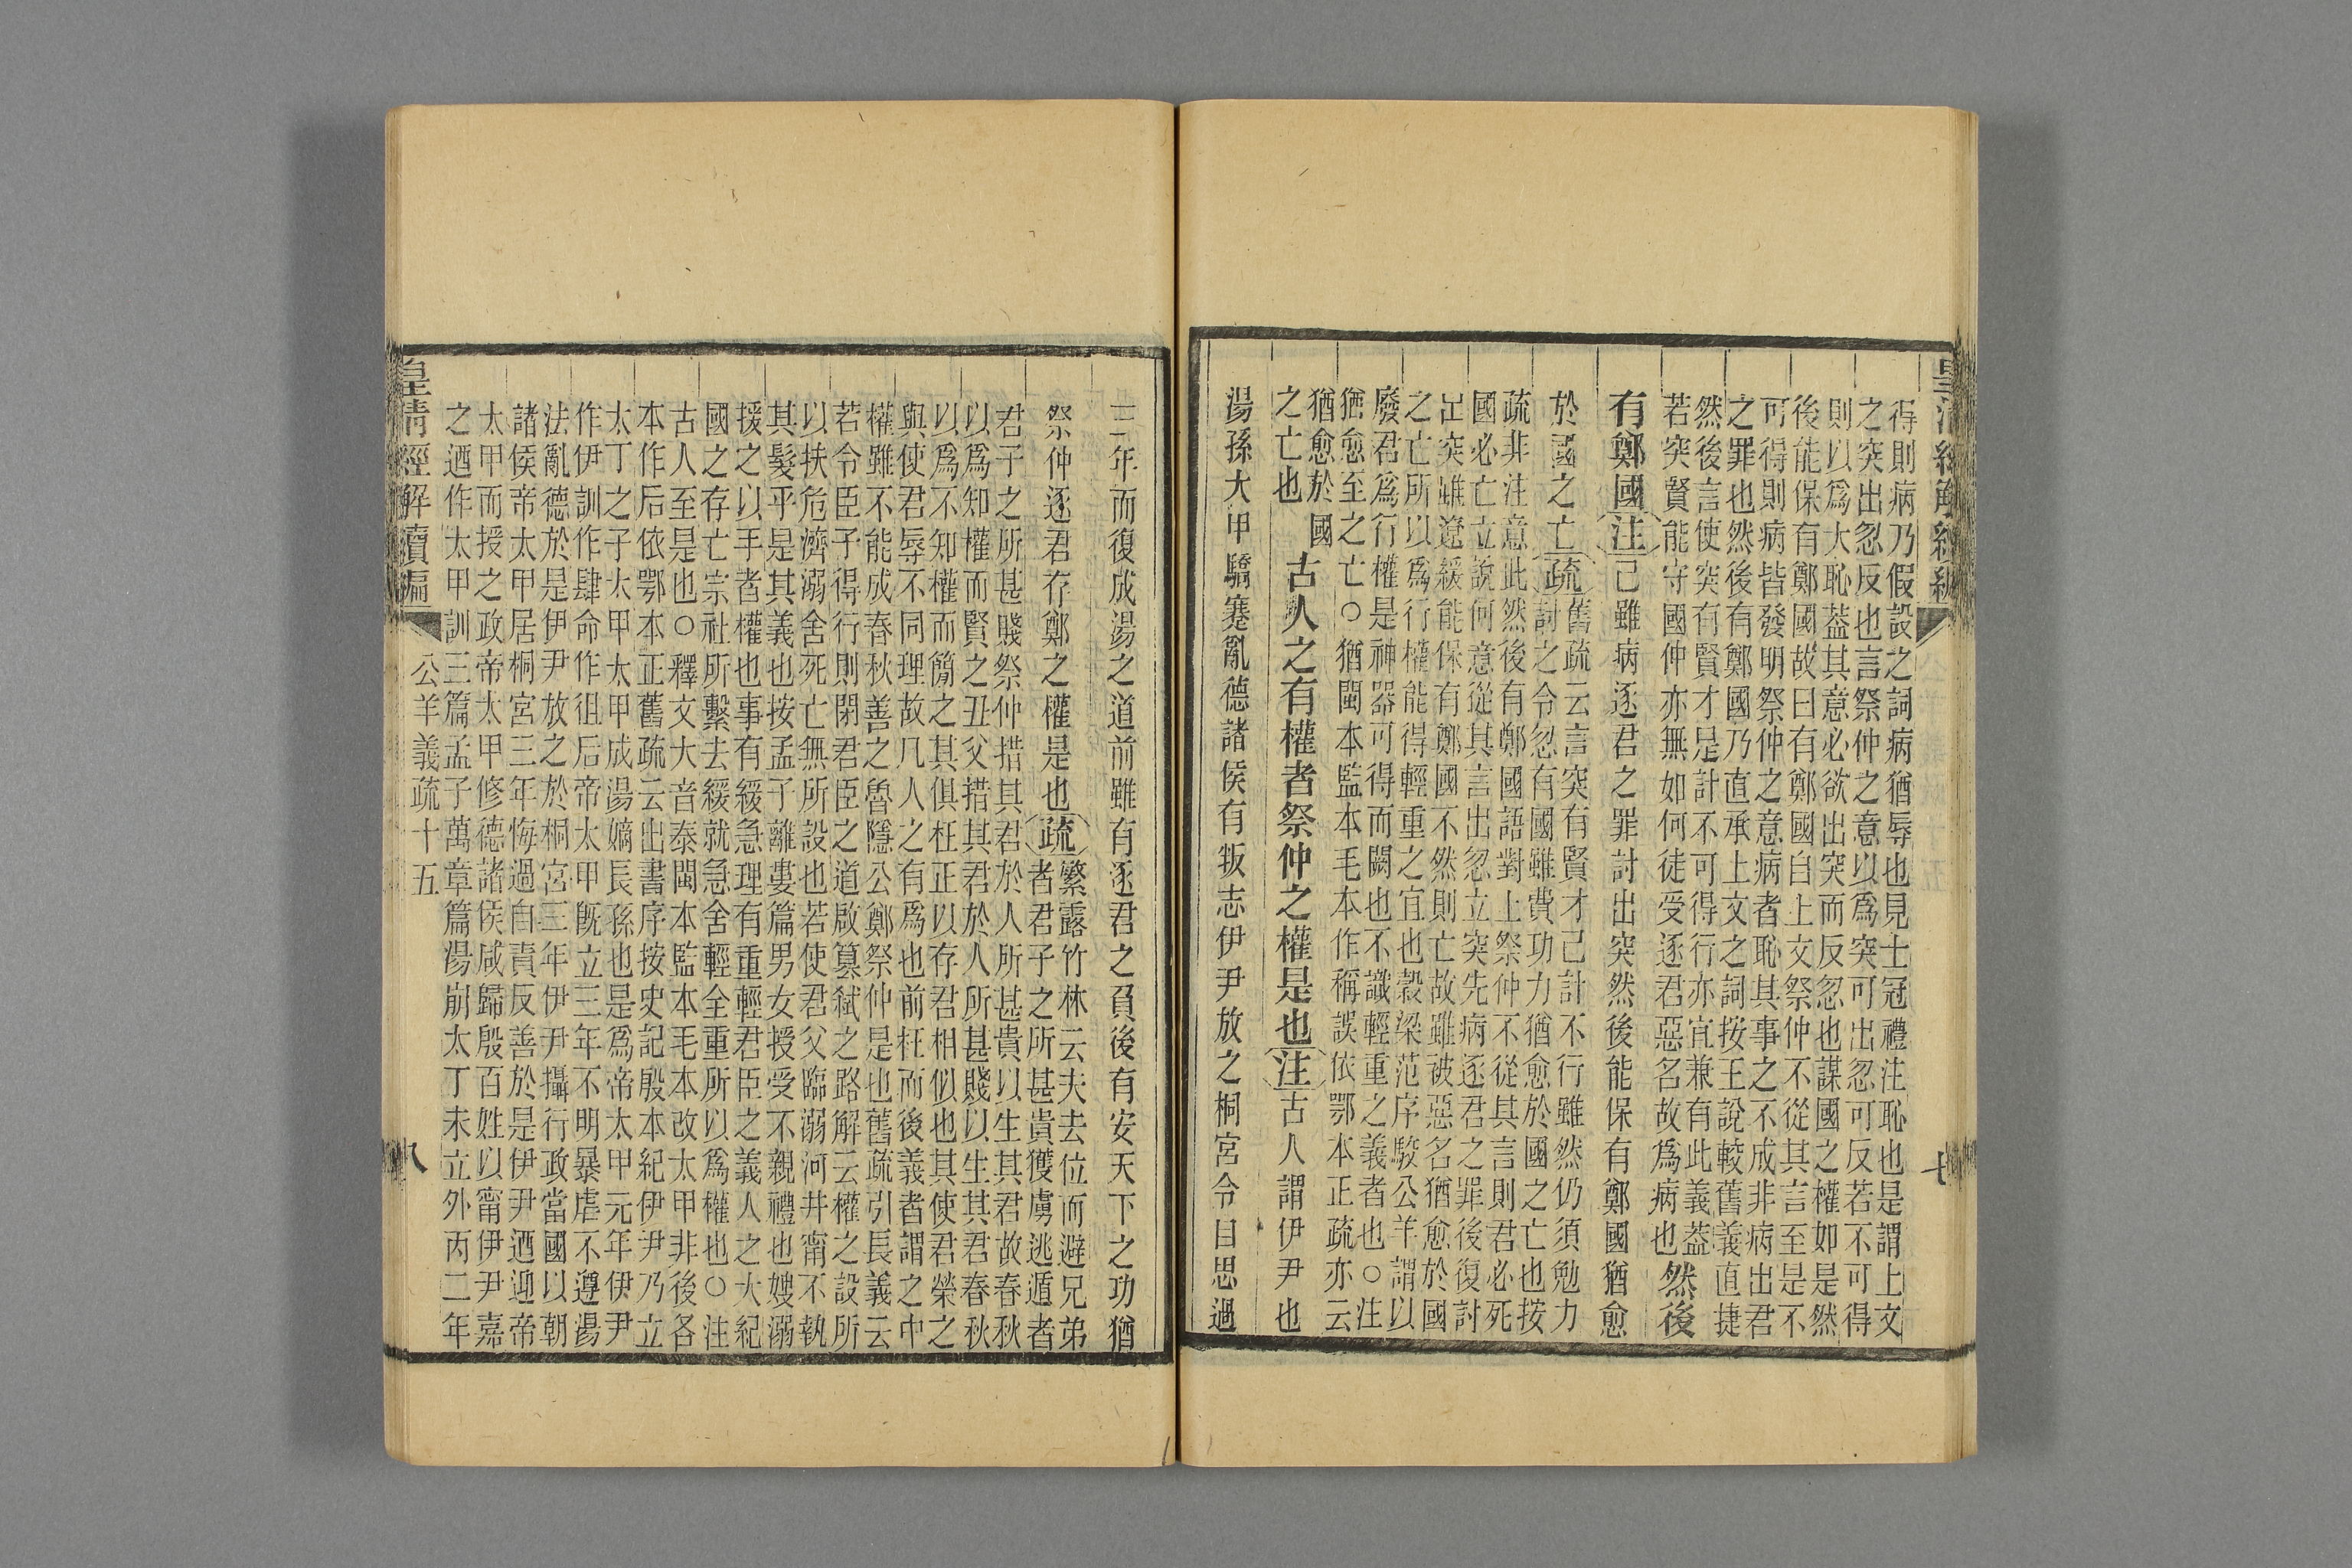 皇清經解續編
得則病乃假設之詞病猶辱也見士冠禮注恥也是謂上文
之突出忽反也言祭仲之意以爲突可出忽可反若不可得
則以爲大恥葢其意必欲出突而反忽也謀國之權如是然
後能保有鄭國故曰有鄭國自上文祭仲不從其言至是不
可得則病皆發明祭仲之意病者恥其事之不成非病出君
之罪也然後有鄭國乃直承上文之詞按王說較舊義直捷
然後言使突有賢才是計不可得行亦宜兼有此義葢
若突賢能守國仲亦無如何徒受逐君惡名故爲病也
然後
有鄭國
注
己雖病逐君之罪討出突然後能保有鄭國猶愈
於國之亡
疏
舊疏云言突有賢才己計不行雖然仍須勉力
討之令忽有國雖費功力猶愈於國之亡也按
疏非注意此然後有鄭國語對上祭仲不從其言則君必死
國必亡立說何意從其言出忽立突先病逐君之罪後復討
出突雖遼緩能保有鄭國不然則亡故雖被惡名猶愈於國
之亡所以爲行權能得輕重之宜也穀梁范序駮公羊謂以
廢君爲行權是神器可得而闚也不識輕重之義者也○注
猶愈至之亡○猶閩本監本毛本作稱誤依鄂本正疏亦云
猶愈於國
之亡也
古人之有權者祭仲之權是也
注
古人謂伊尹也
湯孫大甲驕蹇亂德諸侯有叛志伊尹放之桐宮令自思過
七
三年而復成湯之道前雖有逐君之負後有安天下之功猶
祭仲逐君存鄭之權是也
疏
繁露竹林云夫去位而避兄弟
者君子之所甚貴獲虜逃遁者
君子之所甚賤祭仲措其君於人所甚貴以生其君故春秋
以爲知權而賢之丑父措其君於人所甚賤以生其君春秋
以爲不知權而簡之其俱枉正以存君相似也其使君榮之
與使君辱不同理故凡人之有爲也前枉而後義者謂之中
權雖不能成春秋善之魯隱公鄭祭仲是也舊疏引長義云
若令臣子得行則閉君臣之道啟篡弑之路解云權之設所
以扶危濟溺舍死亡無所設也若使君父臨溺河井甯不執
其髮乎是其義也按孟子離婁篇男女授受不親禮也嫂溺
援之以手者權也事有緩急理有重輕君臣之義人之大紀
國之存亡宗社所繫去緩就急舍輕全重所以爲權也○注
古人至是也○釋文大音泰閩本監本毛本改太甲非後各
本作后依鄂本正舊疏云出書序按史記殷本紀伊尹乃立
太丁之子太甲太甲成湯嫡長孫也是爲帝太甲元年伊尹
作伊訓作肆命作徂后帝太甲旣立三年不明暴虐不遵湯
法亂德於是伊尹放之於桐宮三年伊尹攝行政當國以朝
諸侯帝太甲居桐宮三年悔過自責反善於是伊尹迺迎帝
太甲而授之政帝太甲修德諸侯咸歸殷百姓以甯伊尹嘉
之迺作太甲訓三篇孟子萬章篇湯崩太丁未立外丙二年
皇清經解續編
公羊義疏十五
八